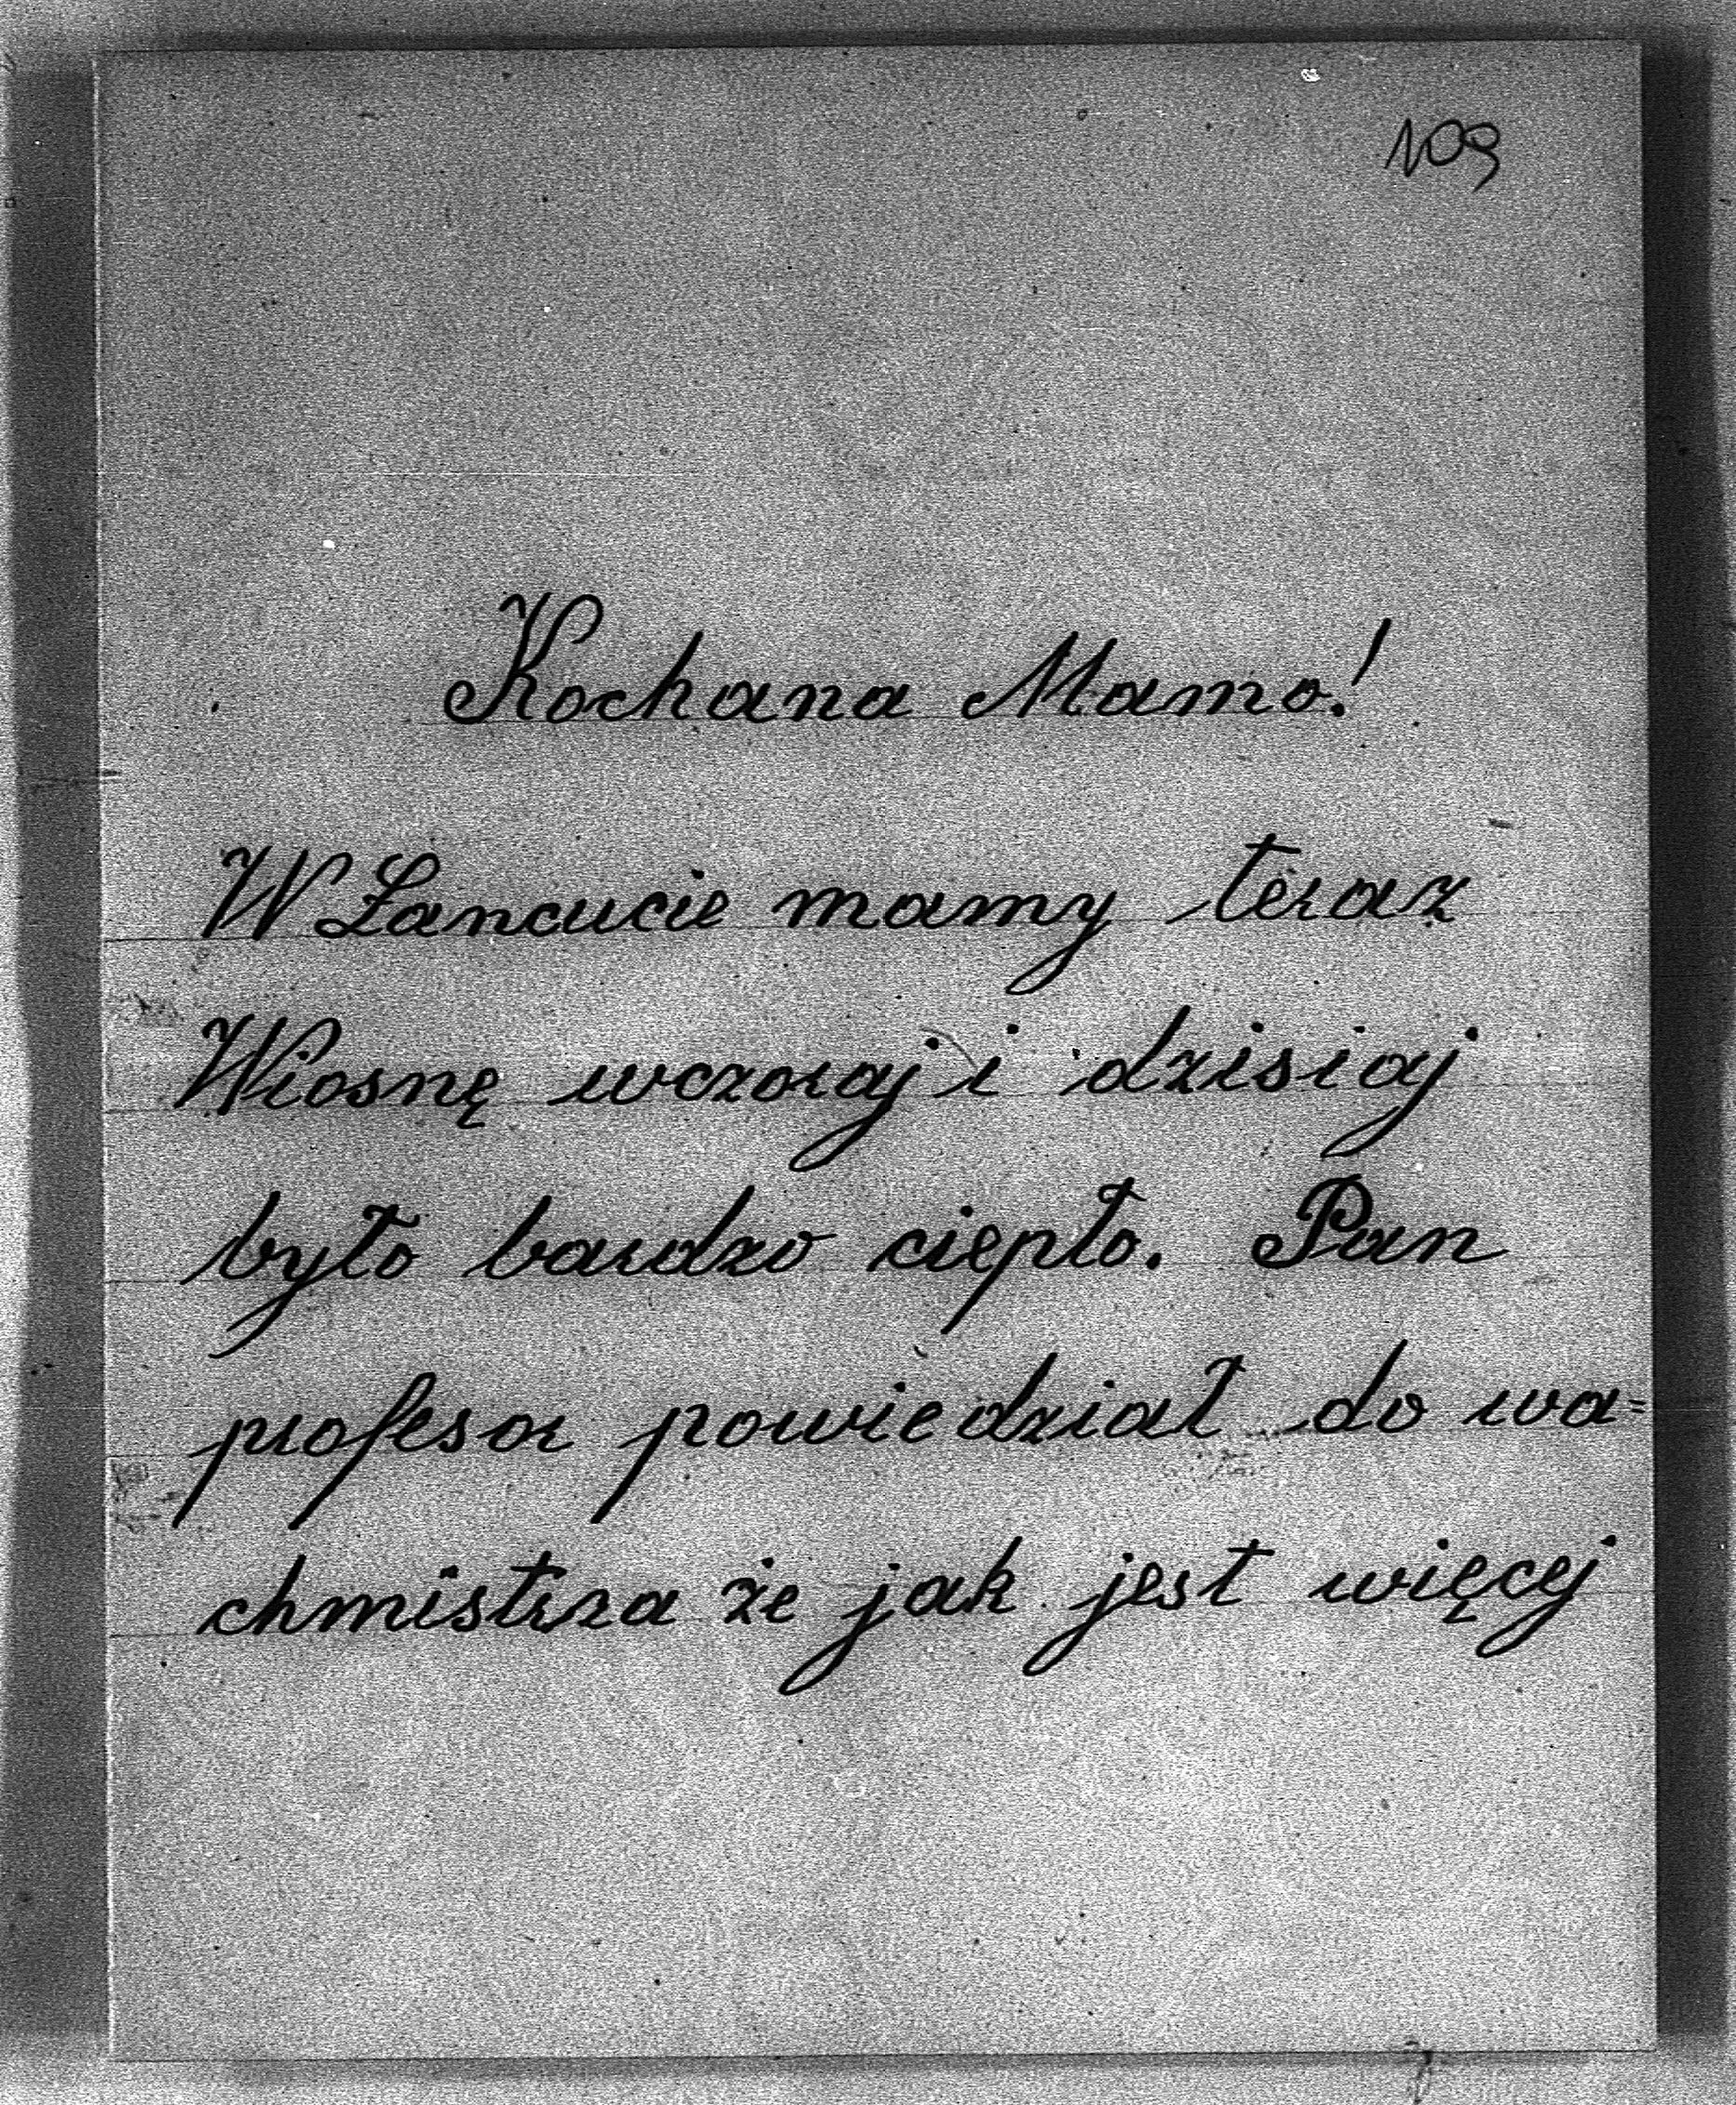 109
Kochana Mamo!
W Łancucie mamy teraz
Wiosnę wczoraj i dzisiaj
było bardzo ciepło. Pan
profesor powiedział do wa=
chmistrza że jak jest więcej